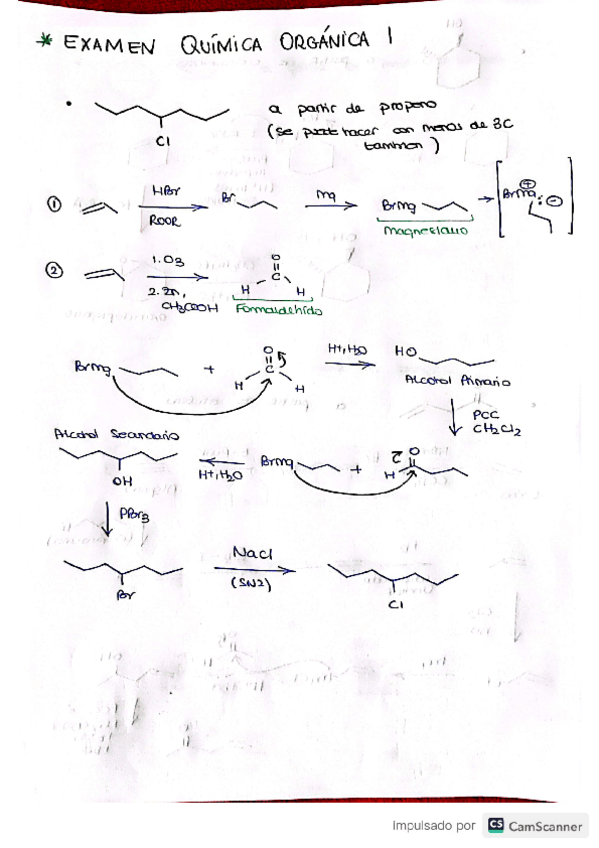 * EXAMEN QUÍMICA ORGÁNICA I
• a partir de propeno
(se puede hacer con menos de 3C
tambien)
Cl
① HBr
ROOR
Br
Mg
BrMg
Magnesiano
BrMg ⊕ : ⊖
② 1. O3
2. Zn,
CH3COOH
O
C
H H
Formaldehído
BrMg + O
C
H H
H+, H2O
HO
Alcohol Primario
PCC
CH2Cl2
Alcohol Secundario
OH
H+, H2O
BrMg + O
H
PBr3
Br
NaCl
(SN2)
Cl
Impulsado por CS CamScanner